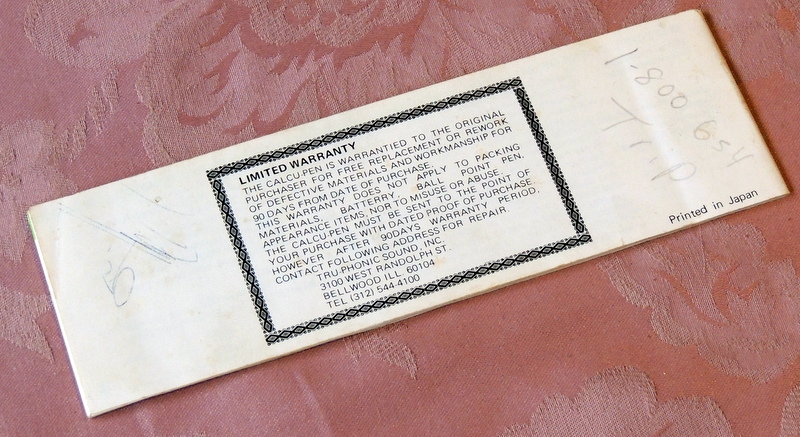 LIMITED WARRANTY
THE CALCU-PEN IS WARRANTIED TO THE ORIGINAL
PURCHASER FOR FREE REPLACEMENT OR REWORK
OF DEFECTIVE MATERIALS AND WORKMANSHIP FOR
90 DAYS FROM DATE OF PURCHASE.
THIS WARRANTY DOES NOT APPLY TO PACKING
MATERIALS, BATTERRY, BALL POINT PEN,
APPEARANCE ITEMS, NOR TO MISUSE OR ABUSE.
THE CALCU-PEN MUST BE SENT TO THE POINT OF
YOUR PURCHASE WITH DATED PROOF OF PURCHASE.
HOWEVER AFTER 90DAYS WARRANTY PERIOD,
CONTACT FOLLOWING ADDRESS FOR REPAIR.
TRU-PHONIC SOUND, INC.
3100 WEST RANDOLPH ST.
BELLWOOD ILL. 60104
TEL (312) 544-4100
Printed in Japan
1-800